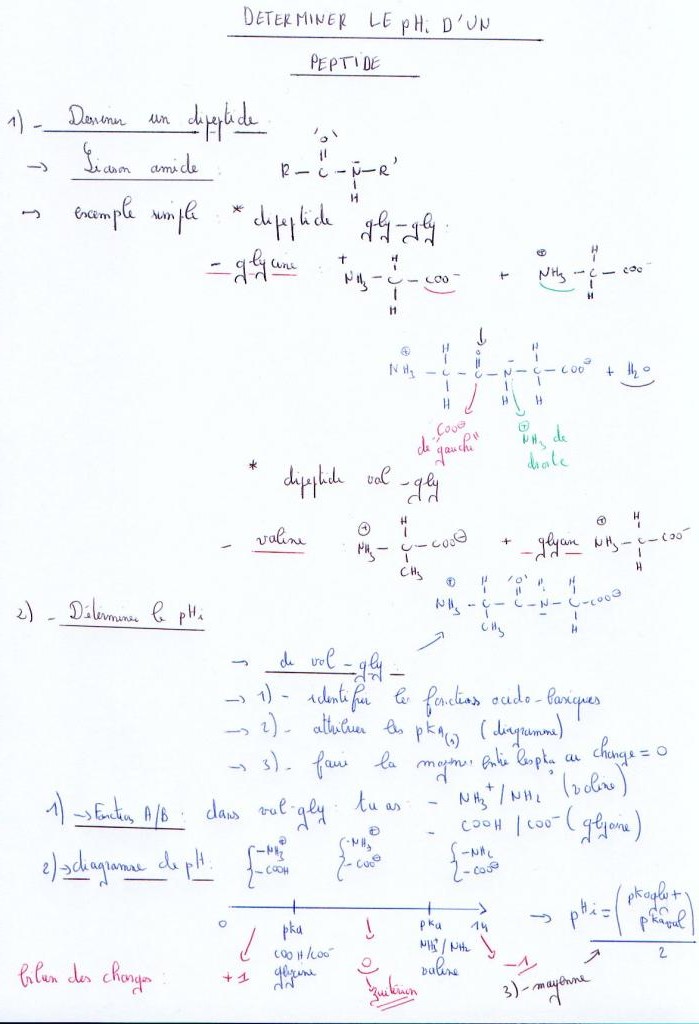 DETERMINER LE pHi D'UN
PEPTIDE
1) - Dessiner un dipeptide
→ Liaison amide :
R - C - N - R'
→ exemple simple : * dipeptide gly-gly.
- glycine : +NH3 - C - COO- + ⊕NH3 - C - COO-
⊕NH3 - C - C - N - C - COO⊖ + H2O
COO⊖ de "gauche"
⊕NH3 de droite
* dipeptide val-gly
- valine : ⊕NH3 - C - COO⊖ + glycine ⊕NH3 - C - COO-
CH3
⊕NH3 - C - C - N - C - COO⊖
CH3
2) - Déterminer le pHi
→ de val-gly -
→ 1) - identifier les fonctions acido-basiques
→ 2) - attribuer les pKA(s) (diagramme)
→ 3) - faire la moyenne entre les pka au change = 0
1) → Fonctions A/B : dans val-gly : tu as : - NH3+/NH2 (valine)
- COOH/COO- (glycine)
2) → diagramme de pH :
{ -NH3⊕ -COOH
{ -NH3⊕ -COO⊖
{ -NH2 -COO⊖
0 pka pka 14
COOH/COO- glycine
NH3+/NH2 valine
→ pHi = (pkagly + pkaval) / 2
bilan des charges : +1 0 -1
zwitérion
3) - moyenne